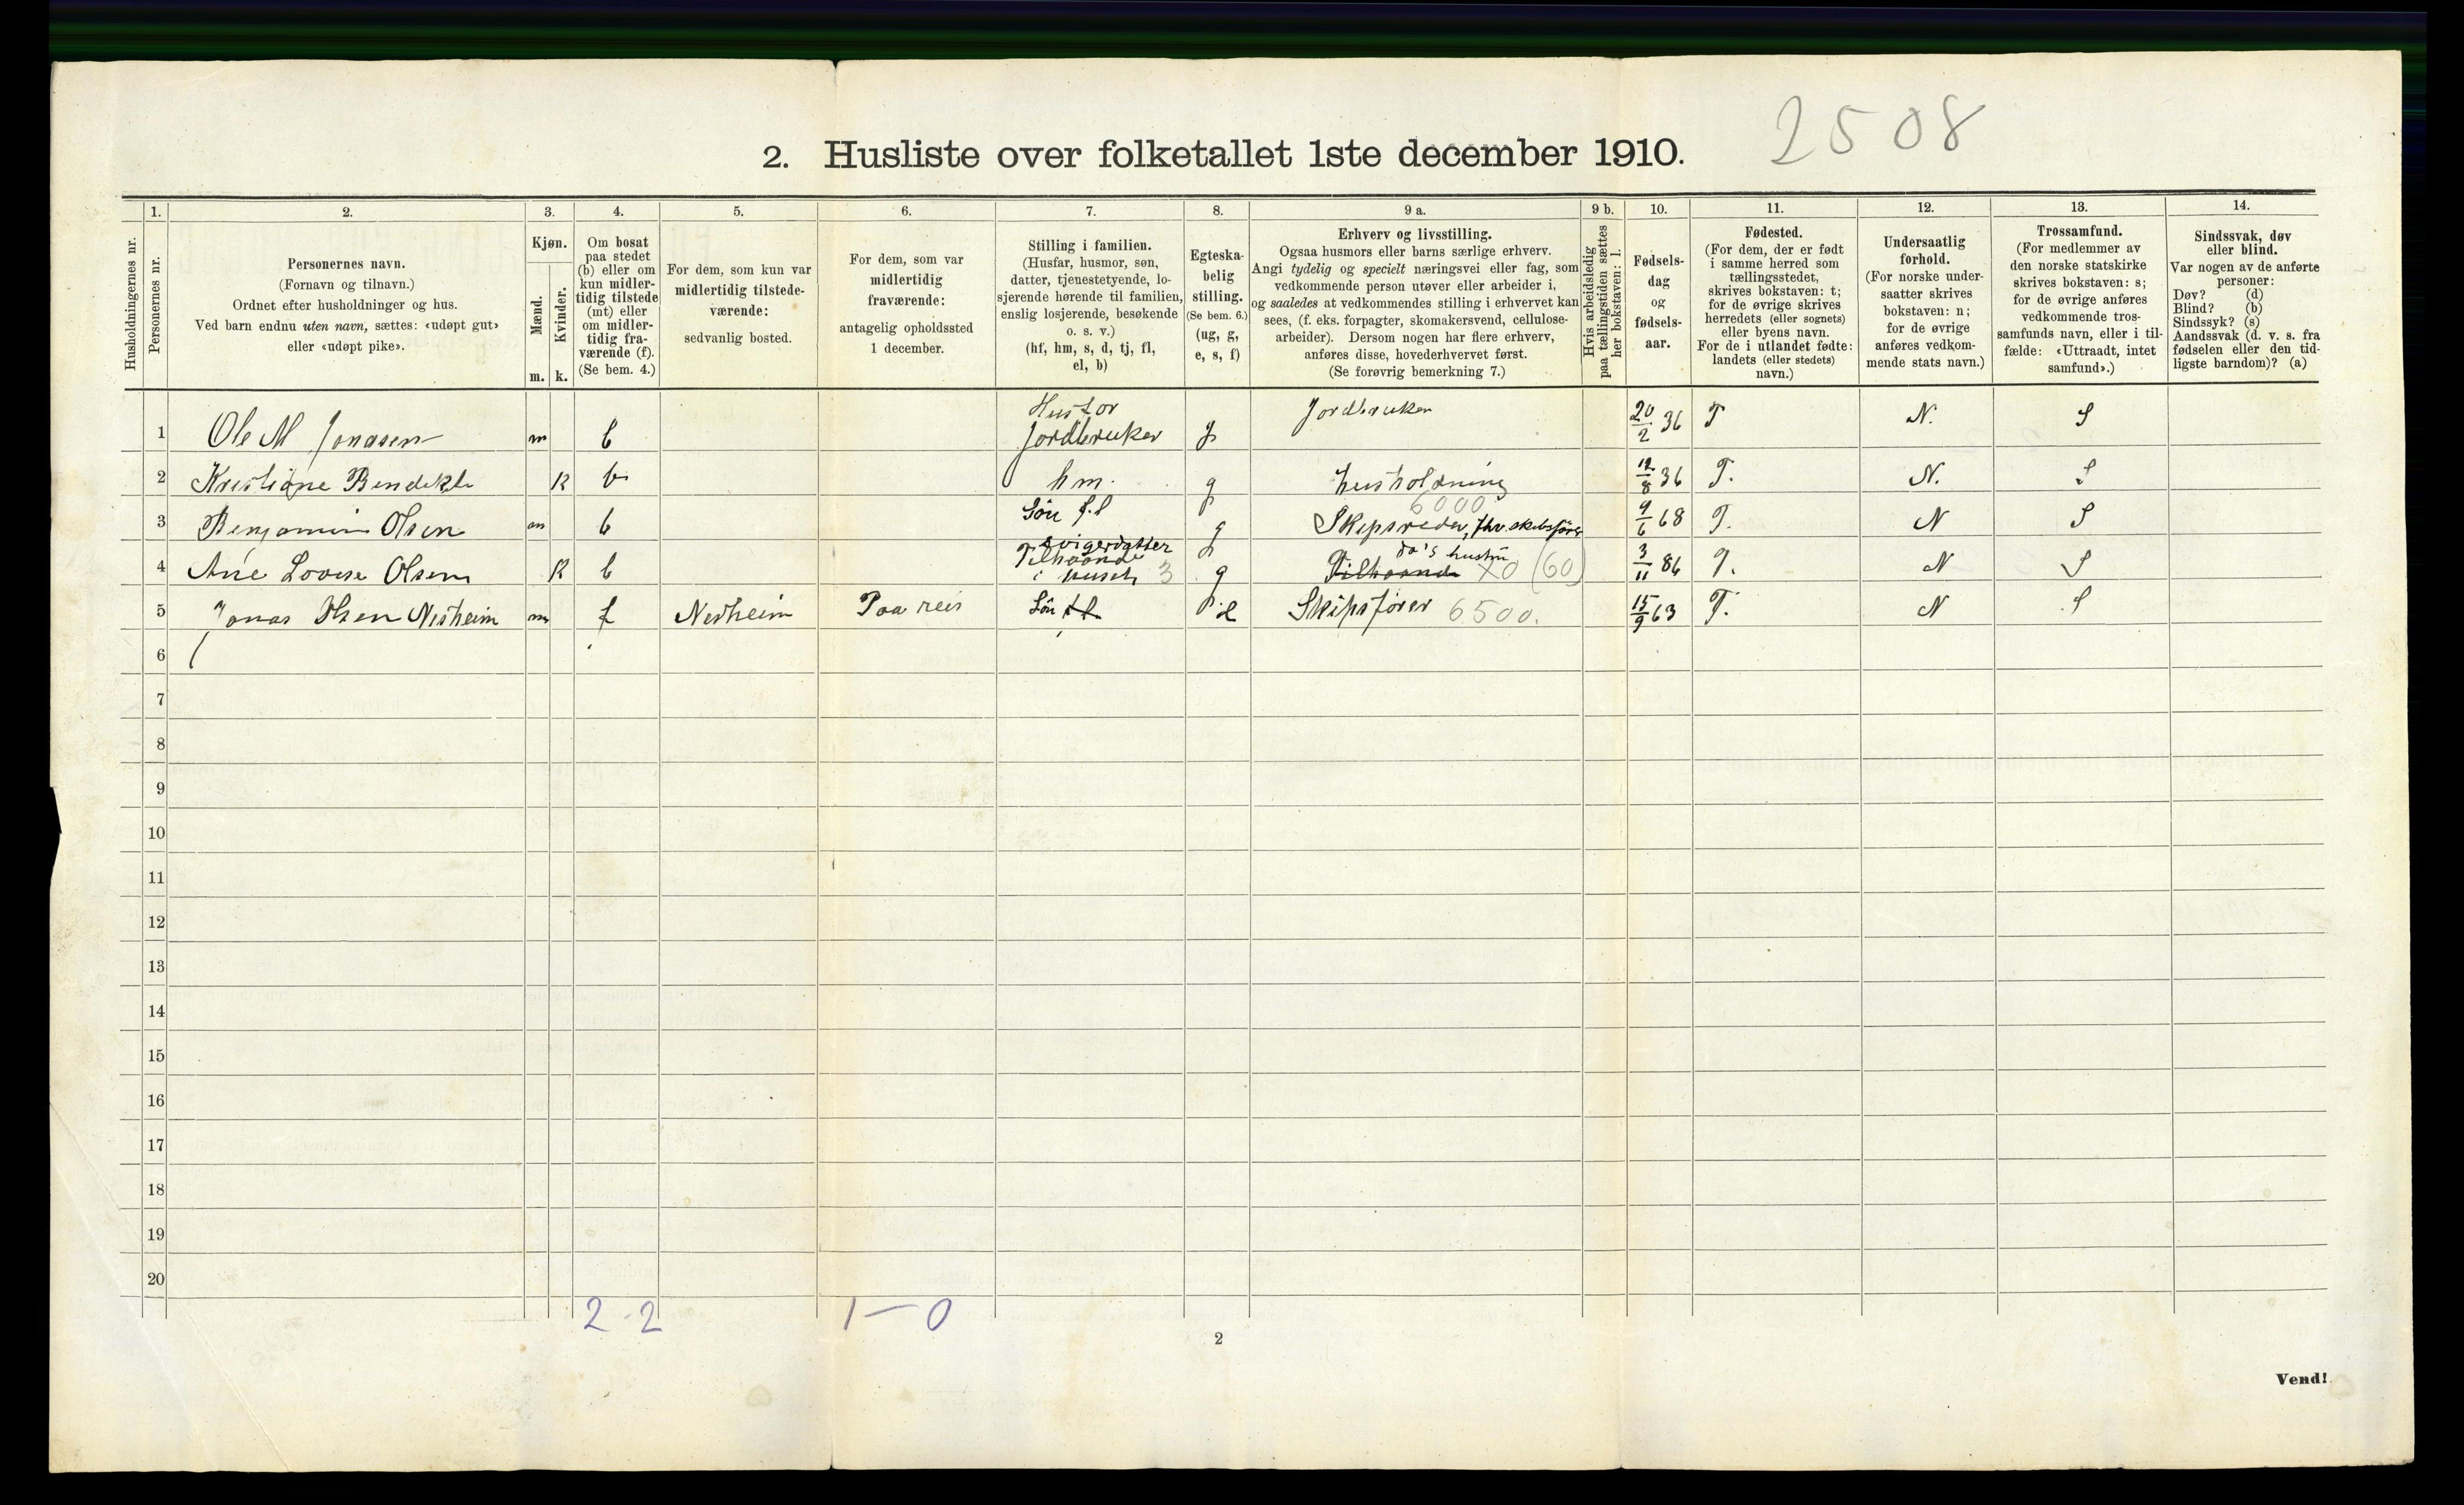 2508
2. Husliste over folketallet 1ste december 1910.
1. 2. 3. 4. 5. 6. 7. 8. 9 a. 9 b. 10. 11. 12. 13. 14.
Husholdningernes nr.
Personernes nr.
Personernes navn.
(Fornavn og tilnavn.)
Ordnet efter husholdninger og hus.
Ved barn endnu uten navn, sættes: «udøpt gut»
eller «udøpt pike».
Kjøn.
Mænd.
Kvinder.
m. k.
Om bosat
paa stedet
(b) eller om
kun midler-
tidig tilstede
(mt) eller
om midler-
tidig fra-
værende (f).
(Se bem. 4.)
For dem, som kun var
midlertidig tilstede-
værende:
sedvanlig bosted.
For dem, som var
midlertidig
fraværende:
antagelig opholdssted
1 december.
Stilling i familien.
(Husfar, husmor, søn,
datter, tjenestetyende, lo-
sjerende hørende til familien,
enslig losjerende, besøkende
o. s. v.)
(hf, hm, s, d, tj, fl,
el, b)
Egteska-
belig
stilling.
(Se bem. 6.)
(ug, g,
e, s, f)
Erhverv og livsstilling.
Ogsaa husmors eller barns særlige erhverv.
Angi tydelig og specielt næringsvei eller fag, som
vedkommende person utøver eller arbeider i,
og saaledes at vedkommendes stilling i erhvervet kan
sees, (f. eks. forpagter, skomakersvend, cellulose-
arbeider). Dersom nogen har flere erhverv,
anføres disse, hovederhvervet først.
(Se forøvrig bemerkning 7.)
Hvis arbeidsledig
paa tællingstiden sættes
her bokstaven: l.
Fødsels-
dag
og
fødsels-
aar.
Fødested.
(For dem, der er født
i samme herred som
tællingsstedet,
skrives bokstaven: t;
for de øvrige skrives
herredets (eller sognets)
eller byens navn.
For de i utlandet fødte:
landets (eller stedets)
navn.)
Undersaatlig
forhold.
(For norske under-
saatter skrives
bokstaven: n;
for de øvrige
anføres vedkom-
mende stats navn.)
Trossamfund.
(For medlemmer av
den norske statskirke
skrives bokstaven: s;
for de øvrige anføres
vedkommende tros-
samfunds navn, eller i til-
fælde: «Uttraadt, intet
samfund».)
Sindssvak, døv
eller blind.
Var nogen av de anførte
personer:
Døv? (d)
Blind? (b)
Sindssyk? (s)
Aandssvak (d. v. s. fra
fødselen eller den tid-
ligste barndom)? (a)
1 Ole M Jonasen m b Jordbruker g Jordbruker 20/2 36 T N. S
2 Kristiane Bendikte k b hm. g husholdning 12/8 36 T. N. S
3 Benjamin Olsen m b Sön f.l g Skipsreder, fhv. skibsfører 6000 9/6 68 T. N S
Svigerdatter do's hustru
4 Ane Lovise Olsen k b Tilhaande i huset 3 g Tilhaande X0 (60) 3/11 86 T. N S
5 Jonas Olsen Nesheim m f Nesheim Paa reis Sön fl e Skipsfører 6500. 15/9 63 T. N S
6
7
8
9
10
11
12
13
14
15
16
17
18
19
20
2 - 2 1 — 0
2
Vend!